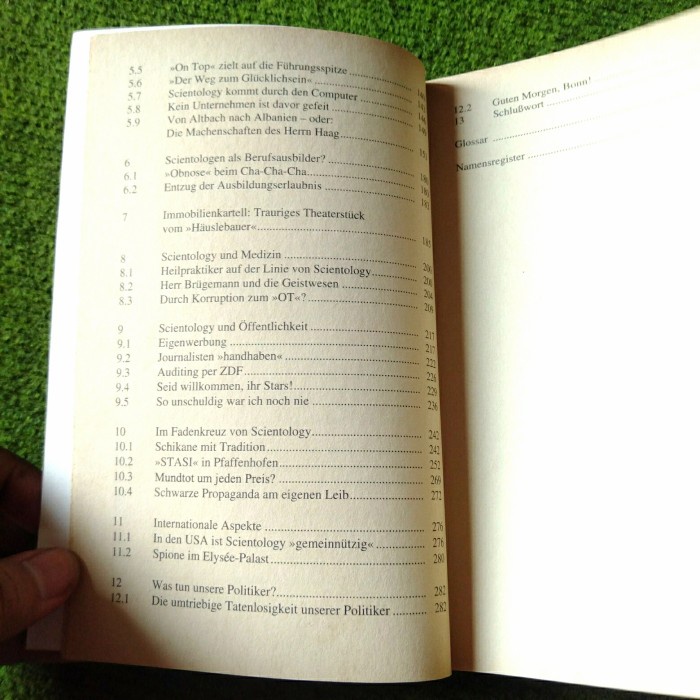 5.5 »On Top« zielt auf die Führungsspitze
5.6 »Der Weg zum Glücklichsein«
5.7 Scientology kommt durch den Computer
5.8 Kein Unternehmen ist davor gefeit
5.9 Von Altbach nach Albanien – oder:
Die Machenschaften des Herrn Haag
6 Scientologen als Berufsausbilder?
6.1 »Obnose« beim Cha-Cha-Cha
6.2 Entzug der Ausbildungserlaubnis
7 Immobilienkartell: Trauriges Theaterstück
vom »Häuslebauer« 185
8 Scientology und Medizin 200
8.1 Heilpraktiker auf der Linie von Scientology 200
8.2 Herr Brügemann und die Geistwesen 204
8.3 Durch Korruption zum »OT«? 209
9 Scientology und Öffentlichkeit 217
9.1 Eigenwerbung 217
9.2 Journalisten »handhaben« 222
9.3 Auditing per ZDF 226
9.4 Seid willkommen, ihr Stars! 229
9.5 So unschuldig war ich noch nie 236
10 Im Fadenkreuz von Scientology 242
10.1 Schikane mit Tradition 242
10.2 »STASI« in Pfaffenhofen 252
10.3 Mundtot um jeden Preis? 269
10.4 Schwarze Propaganda am eigenen Leib 272
11 Internationale Aspekte 276
11.1 In den USA ist Scientology »gemeinnützig« 276
11.2 Spione im Elysée-Palast 280
12 Was tun unsere Politiker? 282
12.1 Die umtriebige Tatenlosigkeit unserer Politiker 282
12.2 Guten Morgen, Bonn!
13 Schlußwort
Glossar
Namensregister